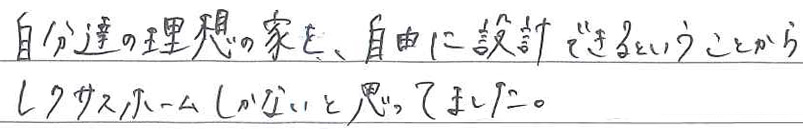 自分達の理想の家を、自由に設計できるということから
レクサスホームしかないと思ってました。